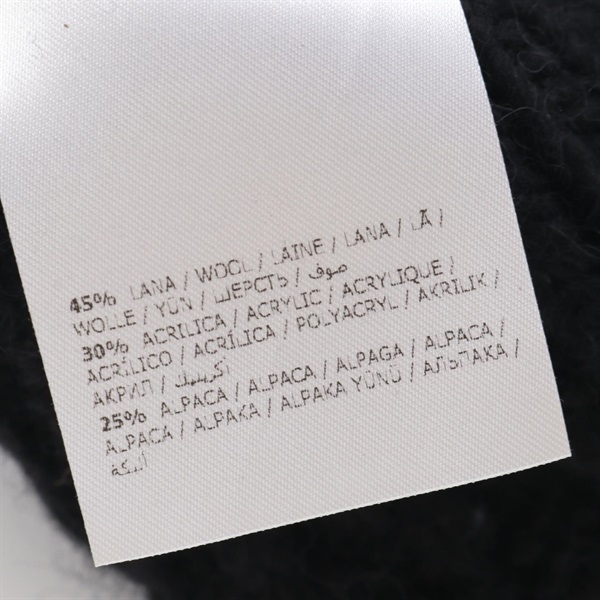 45% LANA / WOOL / LAINE / LANA / LÃ /
WOLLE / YÜN / ШЕРСТЬ / صوف
30% ACRILICA / ACRYLIC / ACRYLIQUE /
ACRÍLICO / ACRÍLICA / POLYACRYL / AKRILIK /
АКРИЛ / اكريليك
25% ALPACA / ALPACA / ALPAGA / ALPACA /
ALPACA / ALPAKA / ALPAKA YÜNÜ / АЛЬПАКА /
ألبكة